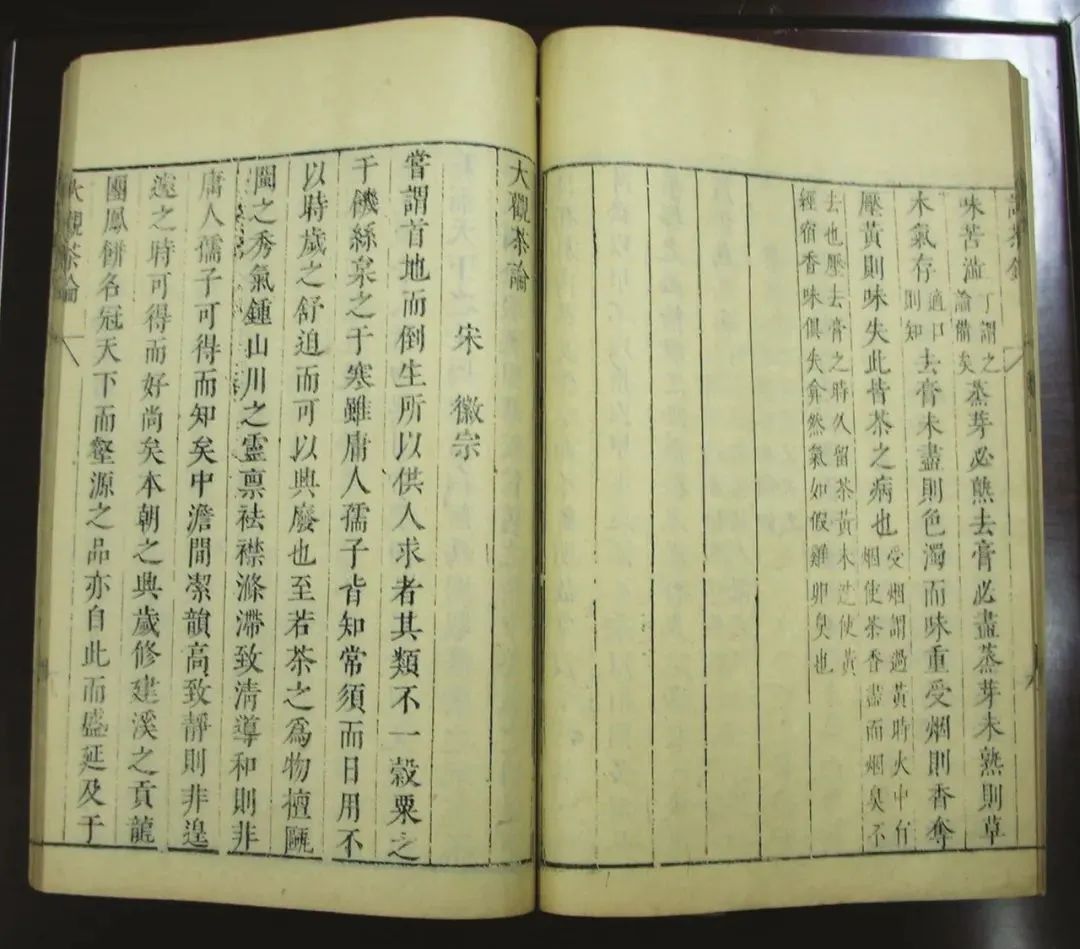 試茶錄
味苦澁丁謂之論備矣蒸芽必熟去膏必盡蒸芽未熟則草
木氣存適口則知去膏未盡則色濁而味重受烟則香奪
壓黃則味失此皆茶之病也受烟謂過黃時火中有烟使茶香盡而烟臭不
去也壓去膏之時久留茶黃未造使黃
經宿香味俱失弇然氣如假雞卵臭也
大觀茶論
宋徽宗
嘗謂首地而倒生所以供人求者其類不一穀粟之
于饑絲枲之于寒雖庸人孺子皆知常須而日用不
以時歲之舒迫而可以興廢也至若茶之爲物擅甌
閩之秀氣鍾山川之靈禀祛襟滌滯致清導和則非
庸人孺子可得而知矣中澹閒潔韻高致靜則非遑
遽之時可得而好尚矣本朝之興歲修建溪之貢龍
團鳳餅名冠天下而壑源之品亦自此而盛延及于
大觀茶論